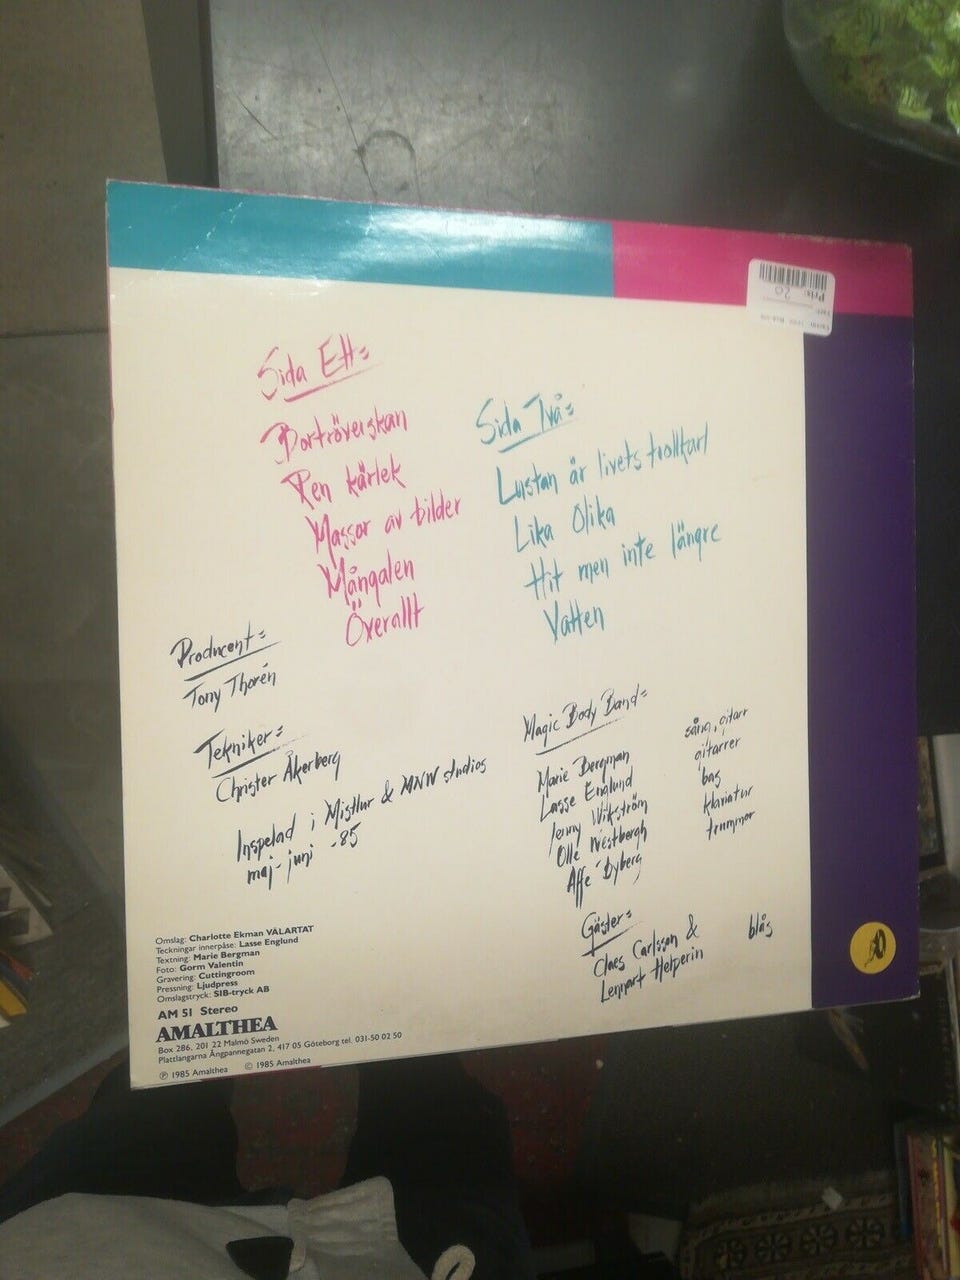 Pris: 20
Sida Ett:
Bortröverskan
Ren kärlek
Massor av bilder
Mångalen
Överallt
Sida Två:
Lustan är livets trollkarl
Lika Olika
Hit men inte längre
Vatten
Producent:
Tony Thorén
Tekniker:
Christer Åkerberg
Inspelad i Mistlur & MNW studios
maj-juni -85
Magic Body Band:
Marie Bergman sång, gitarr
Lasse Englund gitarrer
Jenny Wikström bas
Olle Westbergh klaviatur
Affe Dyberg trummor
Gäster:
Claes Carlsson & blås
Lennart Helperin
Omslag: Charlotte Ekman VÄLARTAT
Teckningar innerpåse: Lasse Englund
Textning: Marie Bergman
Foto: Gorm Valentin
Gravering: Cuttingroom
Pressning: Ljudpress
Omslagstryck: SIB-tryck AB
AM 51 Stereo
AMALTHEA
Box 286, 201 22 Malmö Sweden
Plattlangarna Ångpannegatan 2, 417 05 Göteborg tel. 031-50 02 50
℗ 1985 Amalthea © 1985 Amalthea